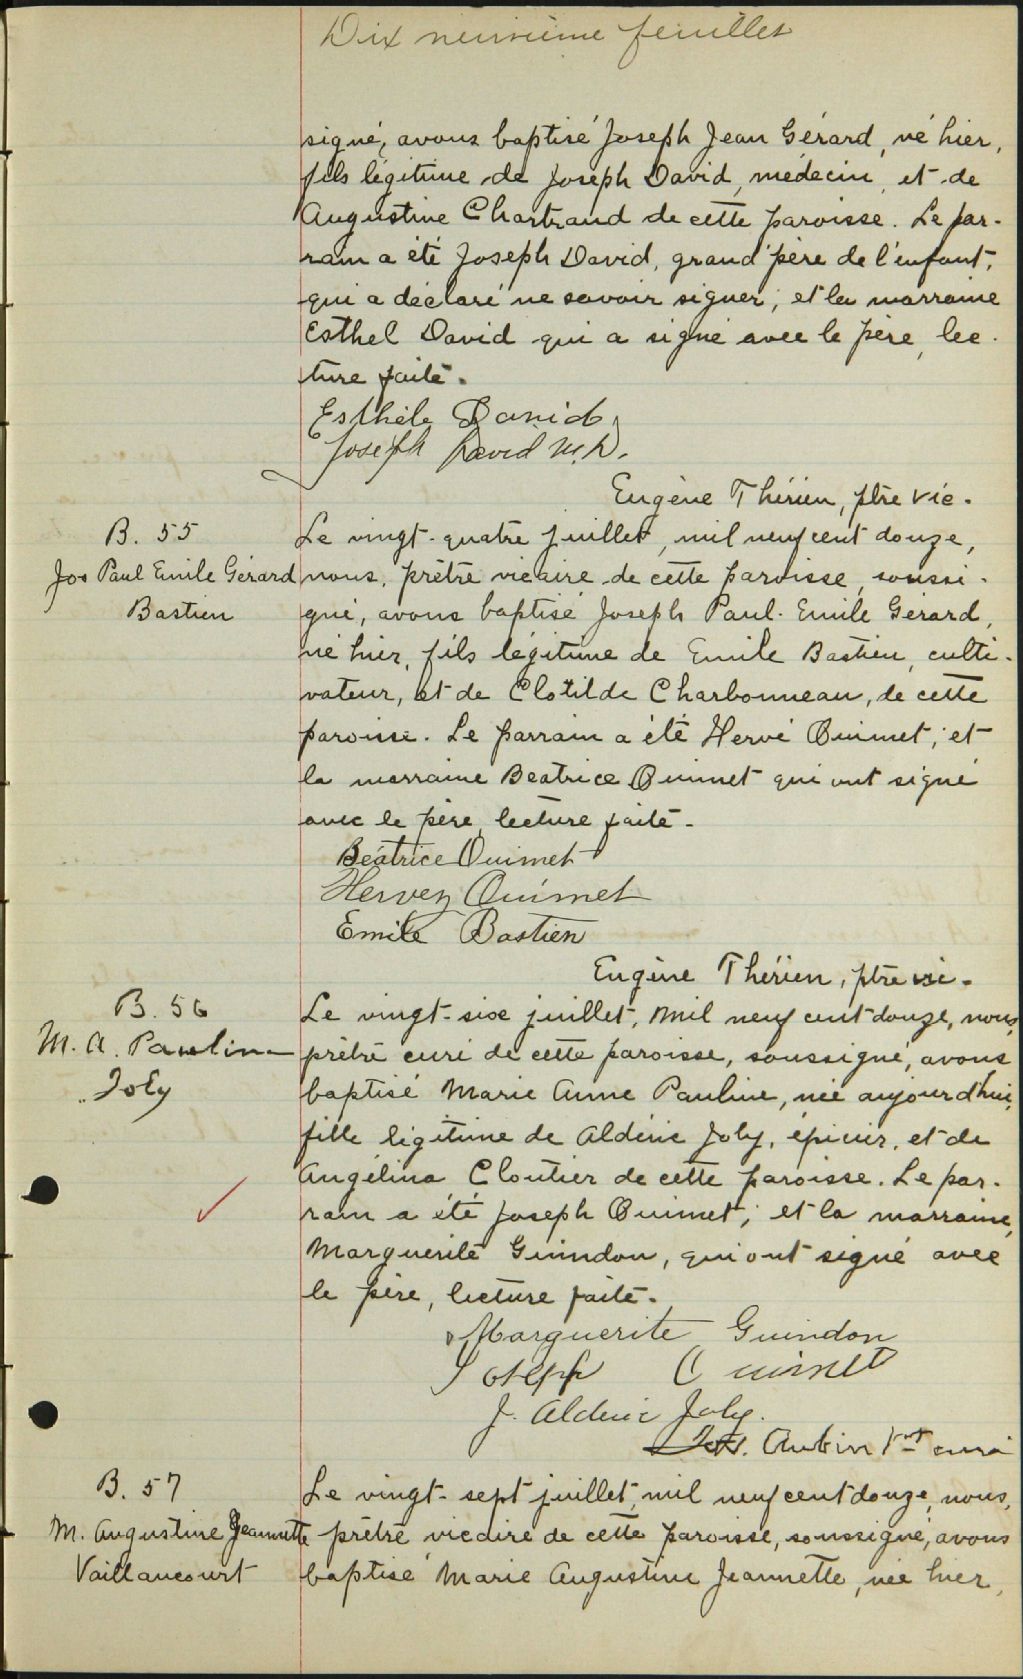 Dix neuvième feuillet
signé, avons baptisé Joseph Jean Gérard, né hier,
fils légitime de Joseph David, médecin, et de
Augustine Chartrand de cette paroisse. Le par-
rain a été Joseph David, grand'père de l'enfant,
qui a déclaré ne savoir signer, et la marraine
Esthel David qui a signé avec le père, lec-
ture faite.
Esthèle David
Joseph David M.D.
Eugène Thérien, ptre vic.
B. 55
Jos Paul Emile Gérard
Bastien
Le vingt-quatre juillet, mil neuf cent douze,
nous, prêtre vicaire de cette paroisse, soussi-
gné, avons baptisé Joseph Paul-Emile Gérard,
né hier, fils légitime de Emile Bastien, culti-
vateur, et de Clotilde Charbonneau, de cette
paroisse. Le parrain a été Hervé Ouimet, et
la marraine Beatrice Ouimet qui ont signé
avec le père, lecture faite.
Béatrice Ouimet
Hervey Ouimet
Emile Bastien
Eugène Thérien, ptre vic.
B. 56
M. A. Pauline
Joly
Le vingt-six juillet, mil neuf cent douze, nous,
prêtre curé de cette paroisse, soussigné, avons
baptisé Marie Anne Pauline, née aujourd'hui,
fille légitime de Aldéric Joly, épicier, et de
Angélina Cloutier de cette paroisse. Le par-
rain a été Joseph Ouimet; et la marraine,
Marguerite Guindon, qui ont signé avec
le père, lecture faite.
Marguerite Guindon
Joseph Ouimet
J. Alderic Joly.
Jos. Aubin ptre curé
B. 57
M. Augustine Jeannette
Vaillancourt
Le vingt-sept juillet, mil neuf cent douze, nous,
prêtre vicaire de cette paroisse, soussigné, avons
baptisé Marie Augustine Jeannette, née hier,